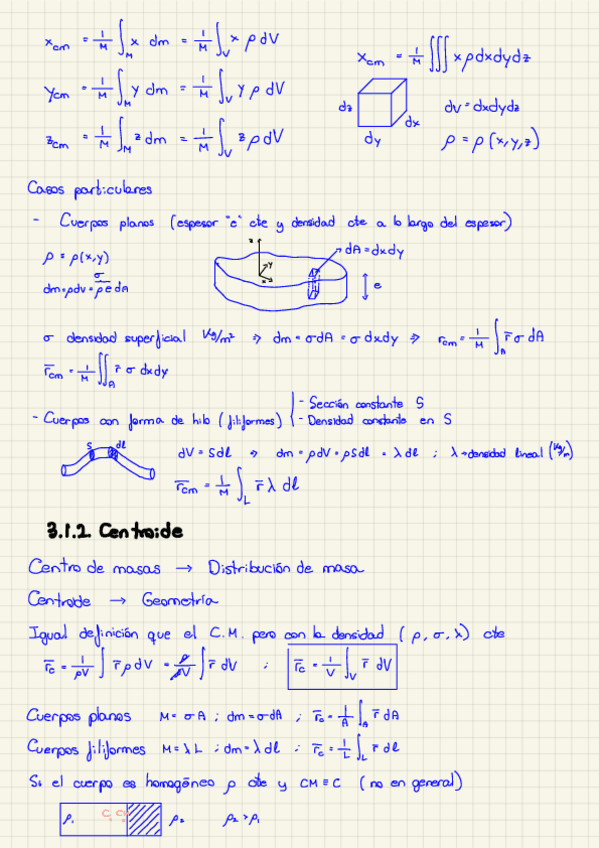 x_cm = 1/M ∫_M x dm = 1/M ∫_V x ρ dV
x_cm = 1/M ∭ x ρ dx dy dz
y_cm = 1/M ∫_M y dm = 1/M ∫_V y ρ dV
dz dx dy
dV = dxdydz
z_cm = 1/M ∫_M z dm = 1/M ∫_V z ρ dV
ρ = ρ(x,y,z)
Casos particulares
- Cuerpos planos (espesor "e" cte y densidad cte a lo largo del espesor)
ρ = ρ(x,y)
z y x
dA = dxdy
e
σ
dm = ρdv = ρ e dA
σ densidad superficial kg/m² ⇒ dm = σdA = σ dxdy ⇒ r_cm = 1/M ∫_A r̄ σ dA
r̄_cm = 1/M ∬_A r̄ σ dxdy
- Cuerpos con forma de hilo (filiformes)
- Sección constante S
- Densidad constante en S
S dl
dV = Sdl ⇒ dm = ρdV = ρSdl = λdl ; λ→densidad lineal (kg/m)
r̄_cm = 1/M ∫_L r̄ λ dl
3.1.2. Centroide
Centro de masas → Distribución de masa
Centroide → Geometría
Igual definición que el C.M. pero con la densidad (ρ, σ, λ) cte
r̄_c = 1/ρV ∫ r̄ ρ dV = ρ/ρV ∫ r̄ dV ; r̄_c = 1/V ∫_V r̄ dV
Cuerpos planos M = σA ; dm = σdA ; r̄_c = 1/A ∫_A r̄ dA
Cuerpos filiformes M = λL ; dm = λdl ; r̄_c = 1/L ∫_L r̄ dl
Si el cuerpo es homogéneo ρ cte y CM ≡ C (no en general)
ρ₁ C ρ₂ ρ₂ > ρ₁